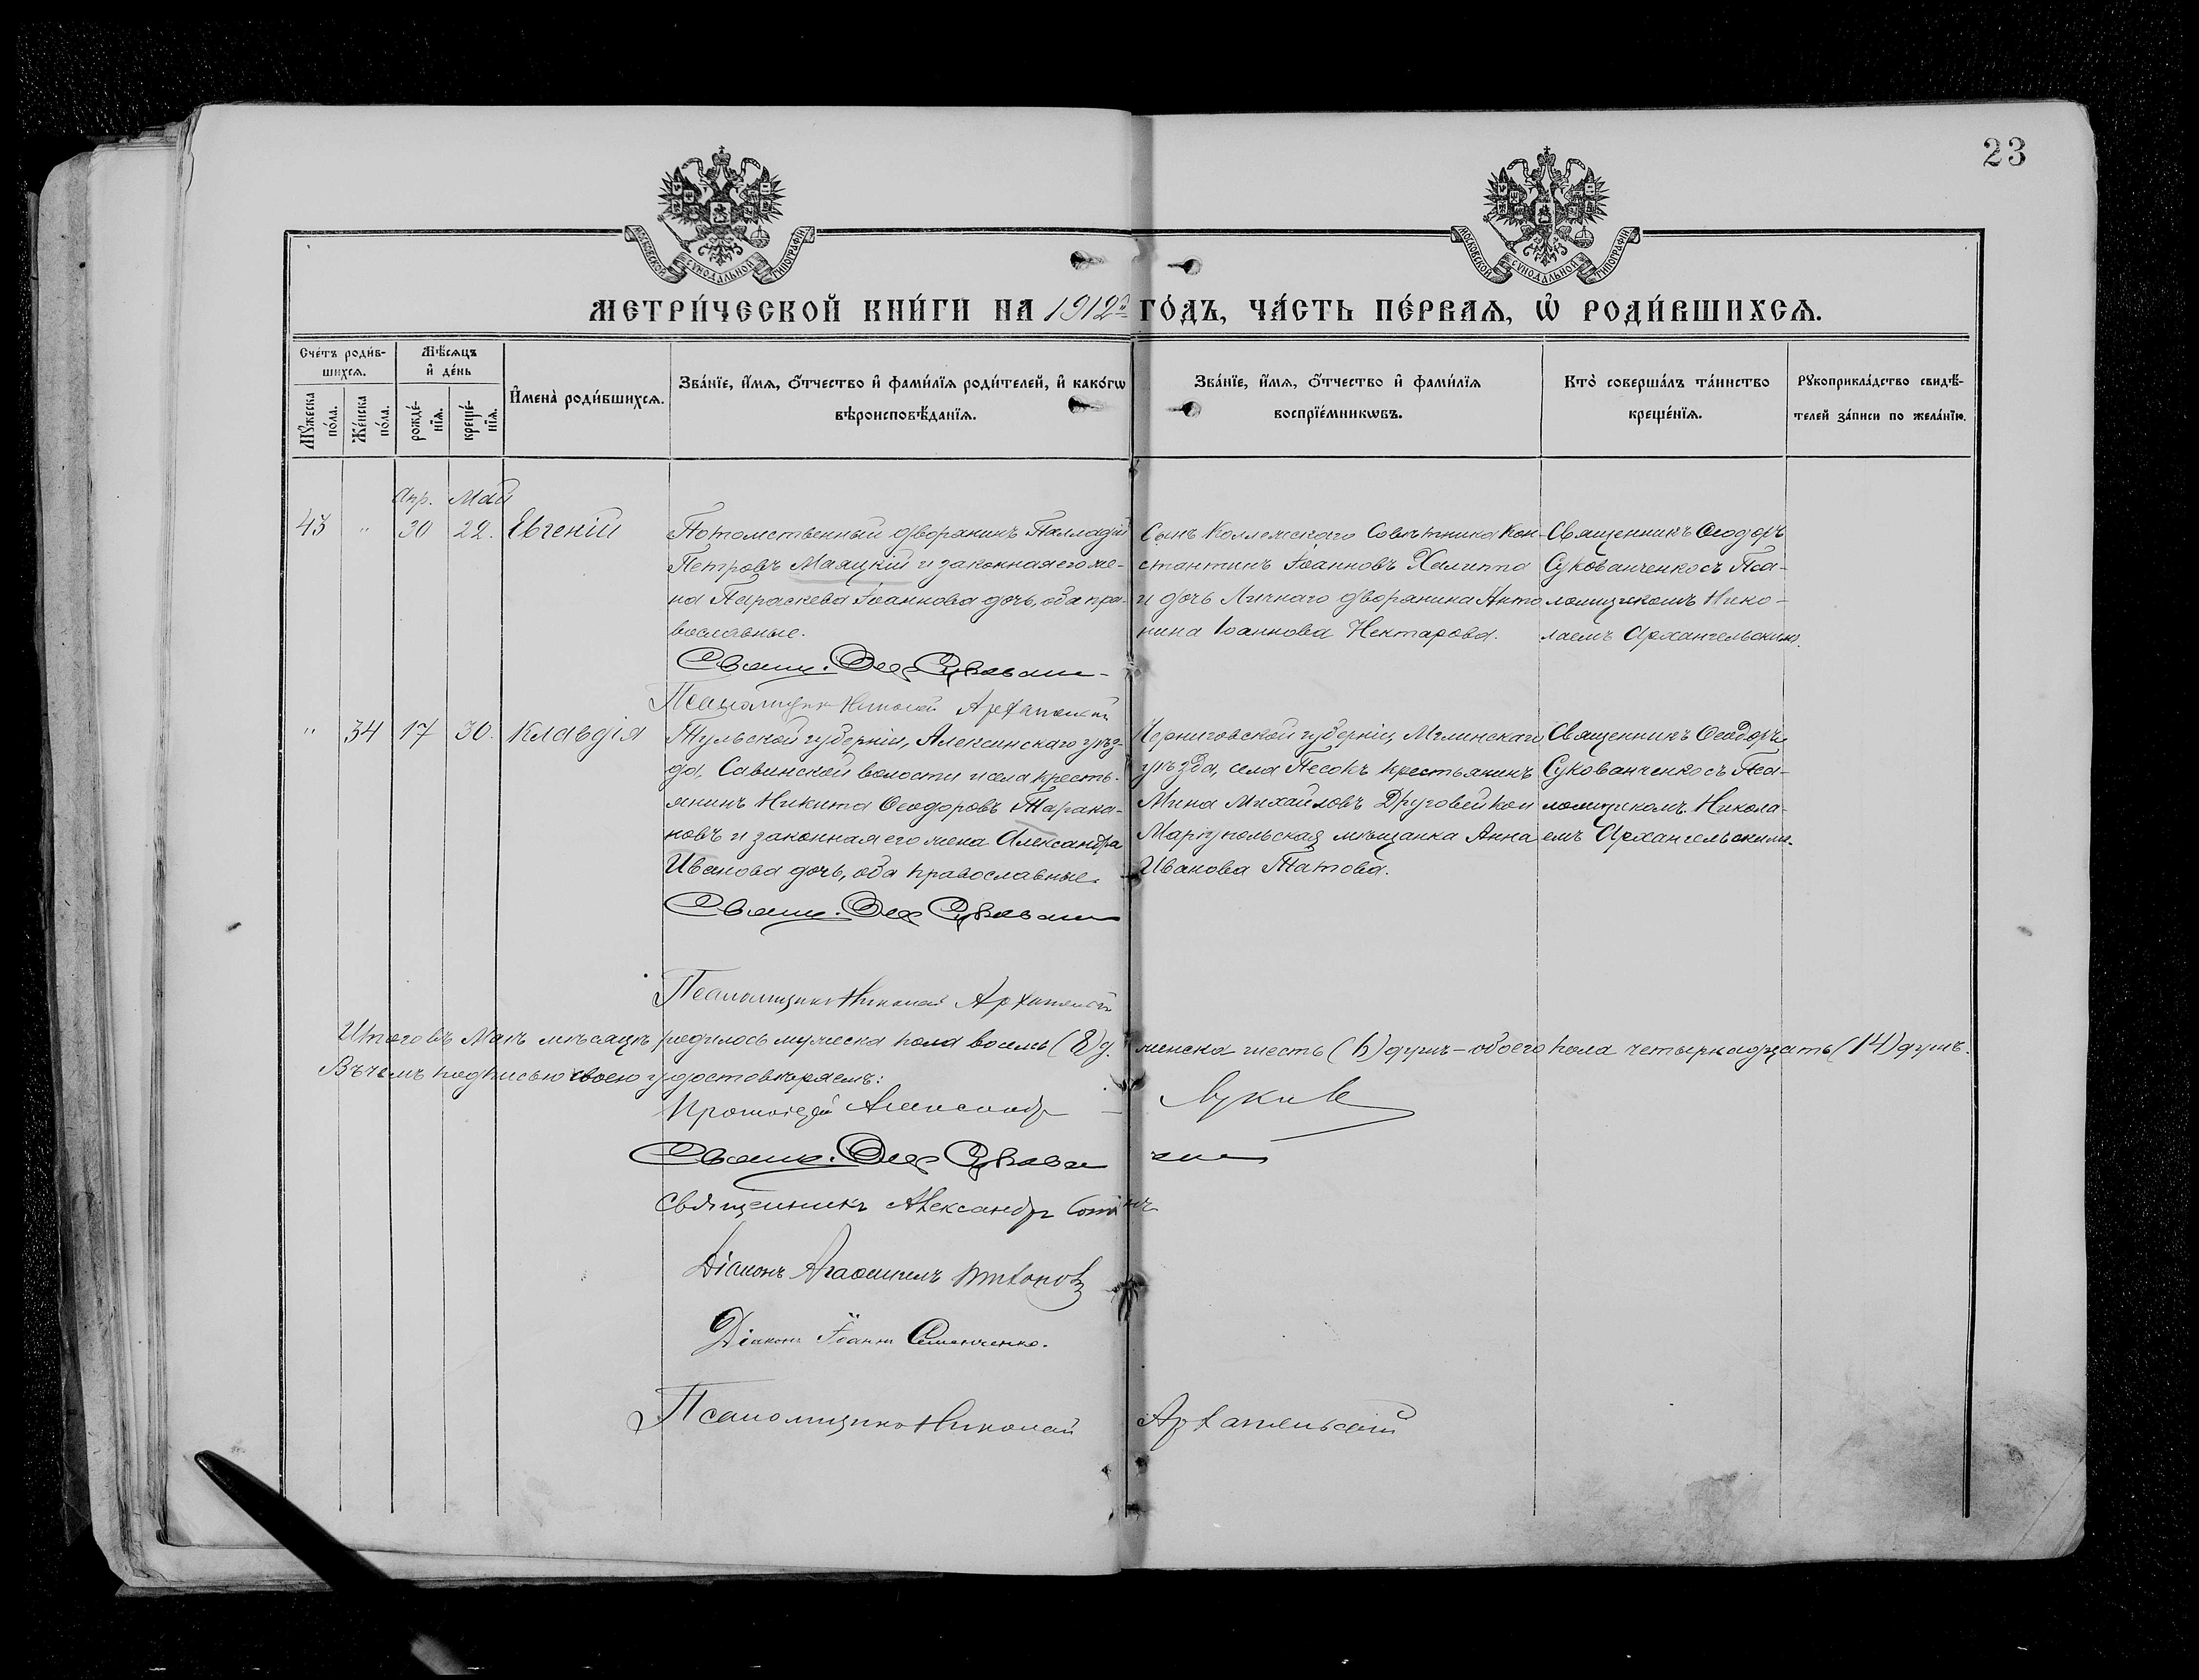 23
МОСКОВСКОЙ СѴНОДАЛЬНОЙ ТИПОГРАФІИ
МОСКОВСКОЙ СѴНОДАЛЬНОЙ ТИПОГРАФІИ
МЕТРИ́ЧЕСКОЙ КНИ́ГИ НА 1912й ГО́ДЪ, ЧА́СТЬ ПЕ́РВАѦ, Ѡ҆ РОДИ́ВШИХСѦ.
Сче́тъ роди́в-
шихсѧ.
Мꙋ́жеска
по́ла.
Же́нска
по́ла.
Мѣ́сѧцъ
и҆ де́нь
рожде́-
нїѧ.
креще́-
нїѧ.
И҆мена̀ роди́вшихсѧ.
Зва́нїе, и҆́мѧ, ѻ҆́тчество и҆ фами́лїѧ роди́телей, и҆ како́гѡ
вѣроисповѣ́данїѧ.
Зва́нїе, и҆́мѧ, ѻ҆́тчество и҆ фами́лїѧ
воспрїе́мникѡвъ.
Кто̀ соверша́лъ та́инство
креще́нїѧ.
Рꙋкоприкла́дство свидѣ́-
телей за́писи по жела́нїю.
Апр. Май
43 " 30 22. Евгеній
Потомственный дворянинъ Палладій
Петровъ Маяцкій и законная его же-
на Параскева Іоаннова дочь, оба пра-
вославные.
Сынъ Коллежскаго Совѣтника Кон-
стантинъ Іоанновъ Халиппа
и дочь Личнаго дворянина Анто
нина Іоаннова Нектарова.
Священникъ Ѳеодоръ
Сукованченко съ Пса-
ломщикомъ Нико-
лаемъ Архангельскимъ.
Свящ. Ѳеод Сукован
Псаломщикъ Николай Архангельскій
" 34 17 30. Клавдія
Тульской губерніи, Алексинскаго уѣз-
да, Савинской волости и села кресть-
янинъ Никита Ѳеодоровъ Тарака-
новъ и законная его жена Александра
Иванова дочь, оба православные.
Черниговской губерніи, Мглинскаго
уѣзда, села Песокъ крестьянинъ
Мина Михайловъ и
Маріупольская мѣщанка Анна
Иванова Татова.
Священникъ Ѳеодоръ
Сукованченко съ Пса-
ломщикомъ Никола-
емъ Архангельскимъ.
Свящ. Ѳеод Сукован
Псаломщикъ Николай Архангельскій
Итого въ Маѣ мѣсяцѣ родилось мужеска пола восемь (8) д. женска шесть (6) душъ - обоего пола четырнадцать (14) душъ.
Въ чемъ подписью своею удостовѣряемъ:
Протоіерей Александръ
Свящ. Ѳеод Сукован
Священникъ Александръ
Діаконъ
Діаконъ Іоаннъ Семенченко.
Псаломщикъ Николай Архангельскій